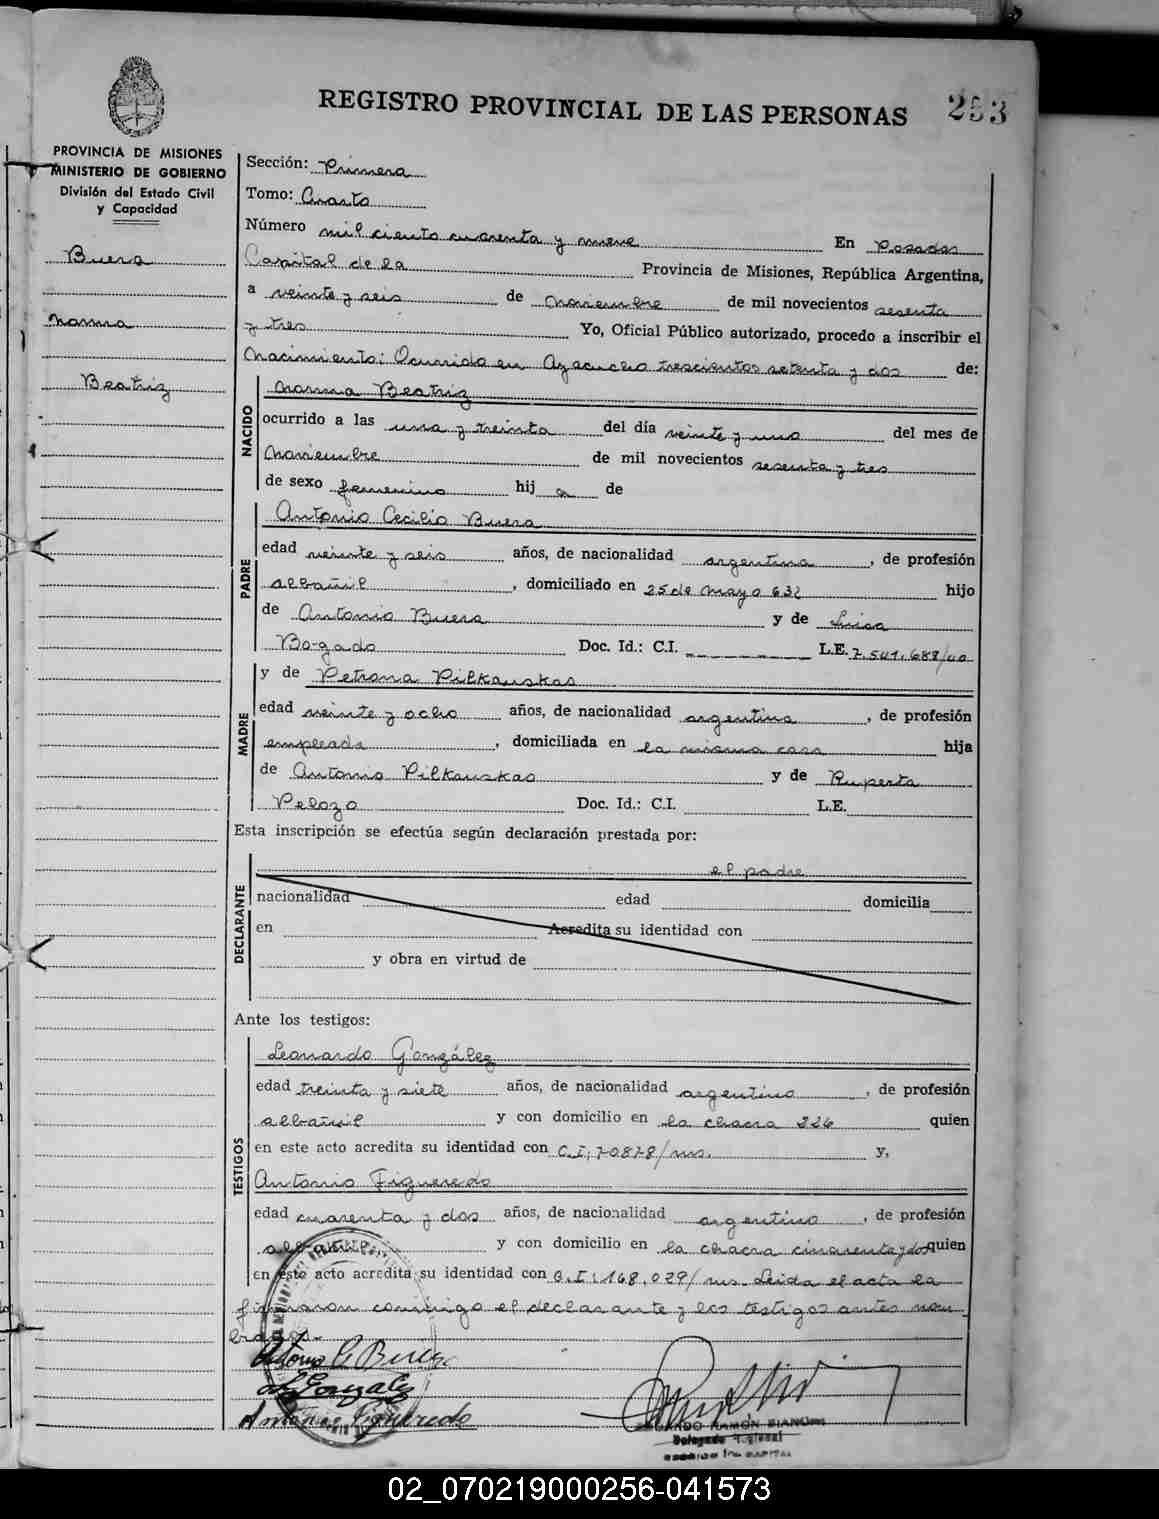 REGISTRO PROVINCIAL DE LAS PERSONAS
253
PROVINCIA DE MISIONES
MINISTERIO DE GOBIERNO
División del Estado Civil
y Capacidad
Buera
Norma
Beatriz
Sección: Primera
Tomo: Cuarto
Número mil ciento cuarenta y nueve En Posadas
Capital de la Provincia de Misiones, República Argentina,
a veinte y seis de noviembre de mil novecientos sesenta
y tres Yo, Oficial Público autorizado, procedo a inscribir el
Nacimiento: Ocurrido en Ayacucho trescientos setenta y dos de:
NACIDO
Norma Beatriz
ocurrido a las una y treinta del día veinte y uno del mes de
Noviembre de mil novecientos sesenta y tres
de sexo femenino hij a de
PADRE
Antonio Cecilio Buera
edad veinte y seis años, de nacionalidad argentina, de profesión
albañil, domiciliado en 25 de Mayo 632 hijo
de Antonio Buera y de Luisa
Bogado Doc. Id.: C.I. L.E. 7.541.688/
MADRE
y de Petrona Pilkauskas
edad veinte y ocho años, de nacionalidad argentina, de profesión
empleada, domiciliada en la misma casa hija
de Antonio Pilkauskas y de Ruperta
Pelozo Doc. Id.: C.I. L.E.
Esta inscripción se efectúa según declaración prestada por:
DECLARANTE
el padre
nacionalidad edad domicilia
en Acredita su identidad con
y obra en virtud de
Ante los testigos:
TESTIGOS
Leonardo González
edad treinta y siete años, de nacionalidad argentino, de profesión
albañil y con domicilio en la chacra 226 quien
en este acto acredita su identidad con C.I. 70878/ms. y,
Antonio Figueredo
edad cuarenta y dos años, de nacionalidad argentino, de profesión
albañil y con domicilio en la chacra cincuenta y dos quien
en este acto acredita su identidad con C.I. 168.029/ms. Leída el acta la
firmaron conmigo el declarante y los testigos antes nom
brados.-
Antonio C Buera
L Gonzalez
Antonio Figueredo
EDUARDO RAMÓN BIANCHI
Delegado Regional
02_070219000256-041573